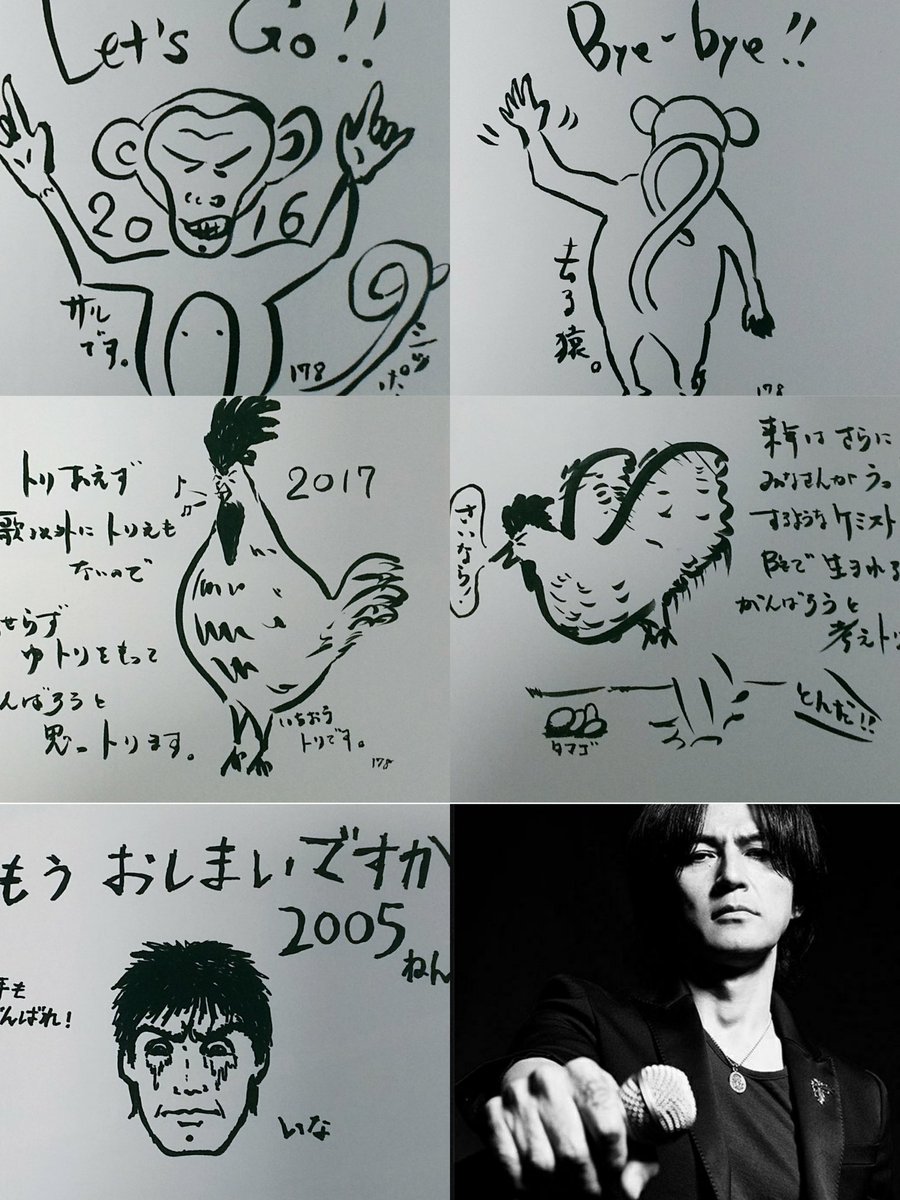 Let's Go!!
2016
サル
です。
178
シッポ
Bye-bye!!
去る猿。
178
トリあえず
2017
歌以外にトリえも
ないので
せらず
ゆトリをもって
んばろうと
思っトリます。
いちおう
トリです。
178
さいなら!
来年はさらに
みなさんがうっ
するようなケミスト
Bzで生まれる
がんばろうと
考えトリ
タマゴ
とんだ!!
もうおしまいですか
2005
ねん
年も
んばれ!
いな